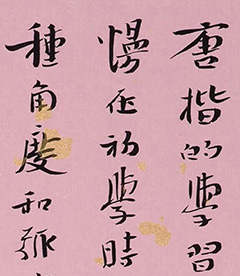 唐楷的學習
慢在初學時
種角度和弧